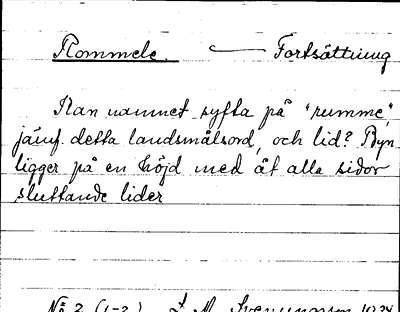 Rommele. — Fortsättning
Kan namnet syfta på "rumme",
jämf. detta landsmålsord, och lid? Byn
ligger på en höjd med åt alla sidor
sluttande lider